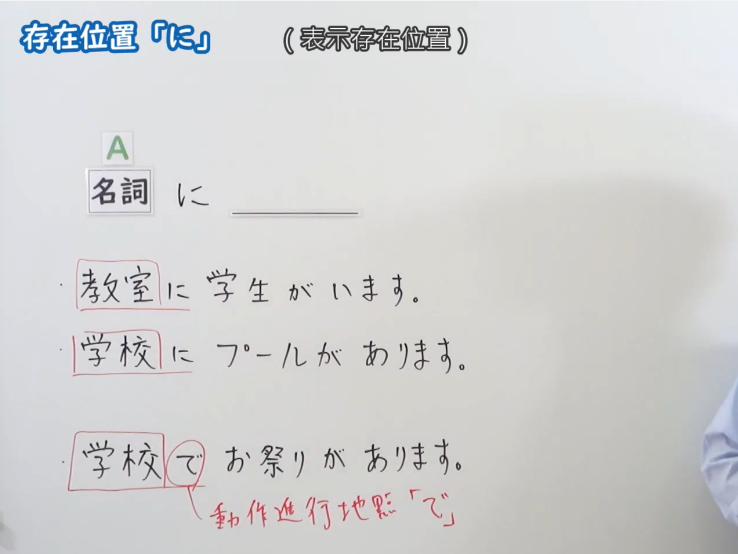 存在位置「に」 (表示存在位置)
A
名詞 に
・教室に 学生がいます。
・学校に プールがあります。
・学校で お祭りがあります。
動作進行地點「で」